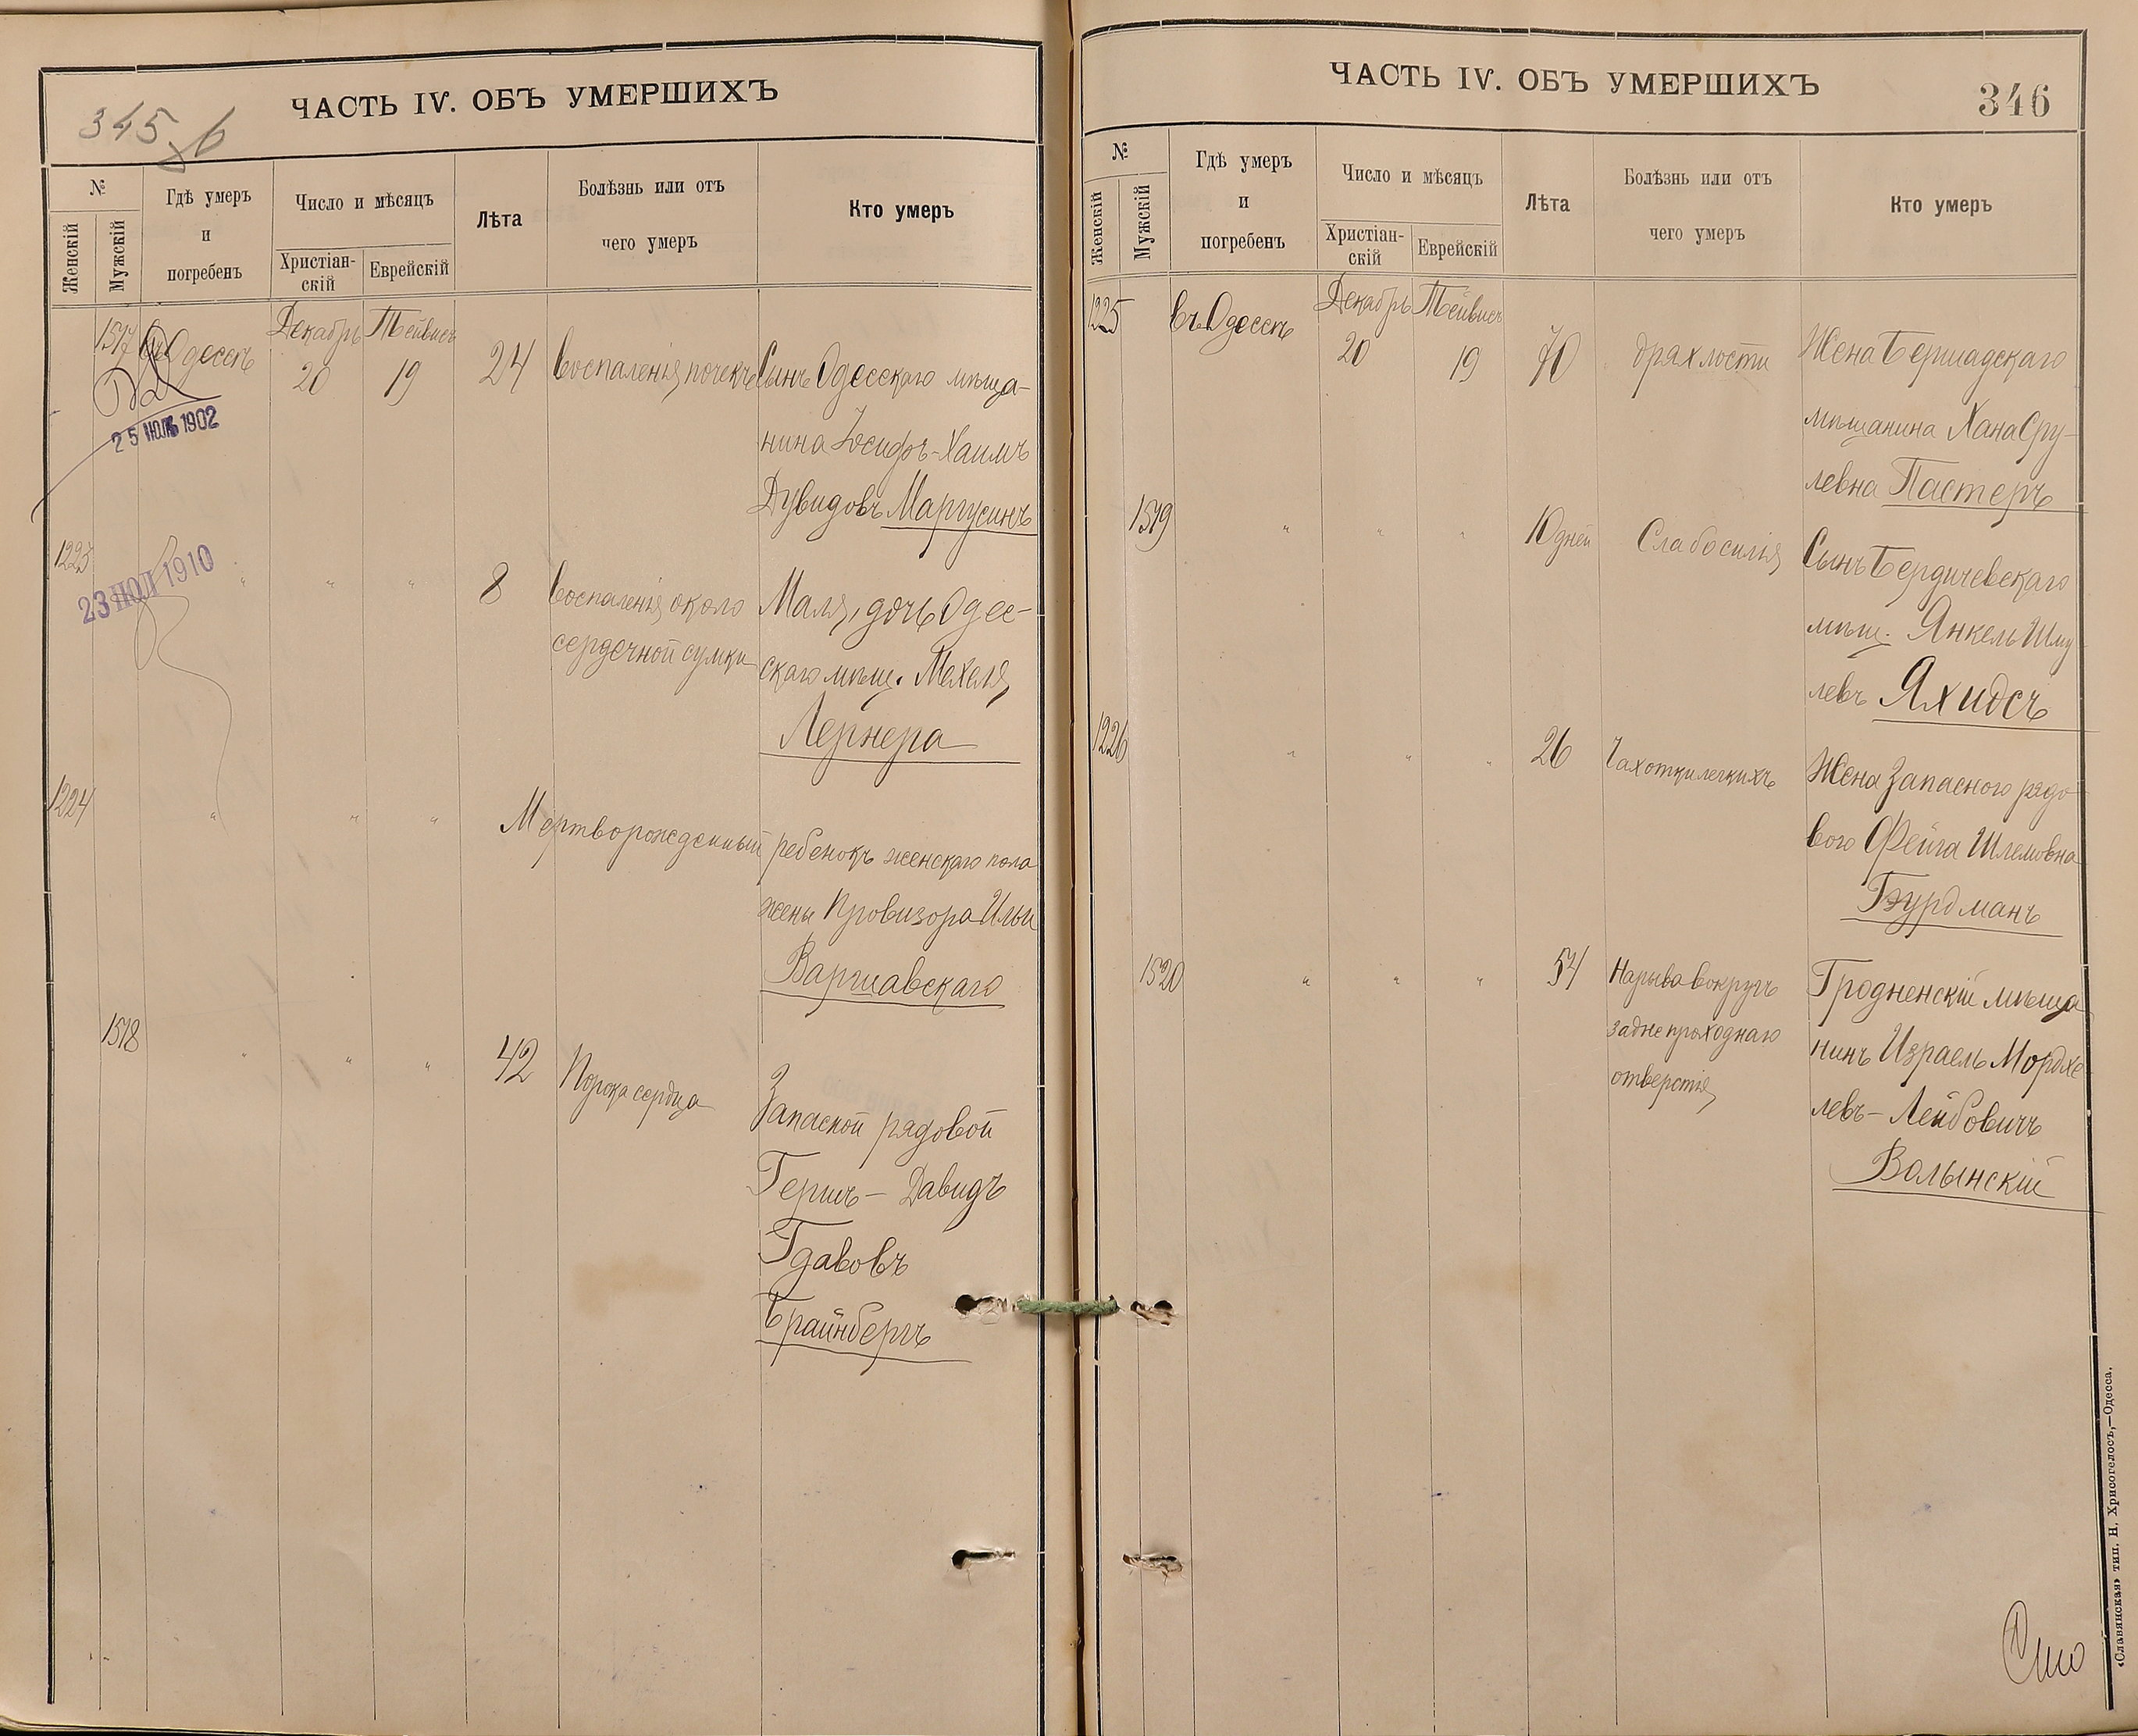 ЧАСТЬ IV. ОБЪ УМЕРШИХЪ
345
№
Женскій
Мужскій
Гдѣ умеръ
и
погребенъ
Число и мѣсяцъ
Христіан-
скій
Еврейскій
Лѣта
Болѣзнь или отъ
чего умеръ
Кто умеръ
1517
въ Одессѣ
Декабрь
20
Тейвисъ
19
24
воспаленія почекъ
Сынъ Одесскаго мѣща-
нина Іосифъ-Хаимъ
Дувидовъ Маргусинъ
25 ИЮЛЬ 1902
1223
23 ИЮЛ 1910
" " "
8
воспаленія около
сердечной сумки
Маля, дочь Одес-
скаго мѣщ. Мехеля
Лернера
1224
" " "
Мертворожденный ребенокъ женскаго пола
жены Провизора Ильи
Варшавскаго
1518
" " "
42
Порока сердца
Запасной рядовой
Гершъ - Давидъ
Гдавовъ
Брайнбергъ
ЧАСТЬ IV. ОБЪ УМЕРШИХЪ
346
№
Женскій
Мужскій
Гдѣ умеръ
и
погребенъ
Число и мѣсяцъ
Христіан-
скій
Еврейскій
Лѣта
Болѣзнь или отъ
чего умеръ
Кто умеръ
1225
въ Одессѣ
Декабрь
20
Тейвисъ
19
70
дряхлости
Жена Бершадскаго
мѣщанина Хана Сру-
левна Пастеръ
1519
" " "
10 дней
Слабосилія
Сынъ Бердичевскаго
мѣщ. Янкель Шму
левъ Яхидсъ
1226
" " "
26
Чахотки легкихъ
Жена Запасного рядо
вого Фейга Шлемовна
Бурдманъ
1520
" " "
54
Нарыва вокругъ
заднепроходнаго
отверстія
Гродненскій мѣща
нинъ Израель Мордхе
левъ - Лейбовичъ
Волынскій
«Славянская» тип. Н. Хрисогелосъ,—Одесса.